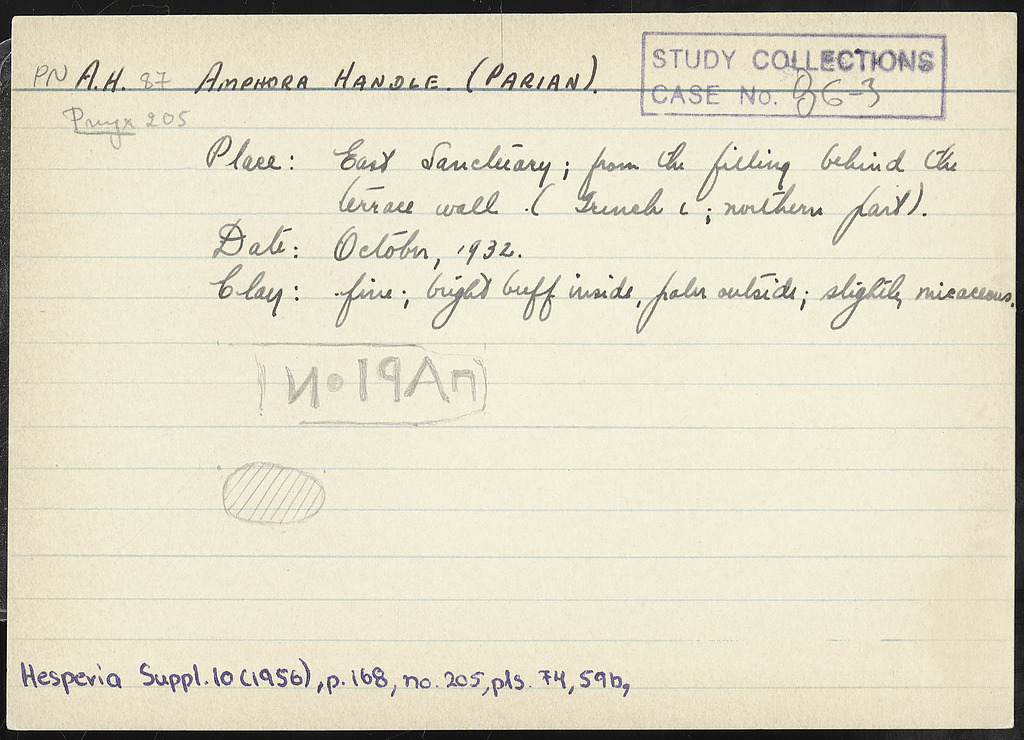 PN A.H. 87 AMPHORA HANDLE. (PARIAN).
STUDY COLLECTIONS
CASE No. 86-3
Pnyx 205
Place: East Sanctuary; from the filling behind the
terrace wall. (Trench c; northern part).
Date: October, 1932.
Clay: fine; bright buff inside, paler outside; slightly micaceous.
ΠΑΡΙΟΝ
Hesperia Suppl. 10 (1956), p. 168, no. 205, pls. 74, 59b,